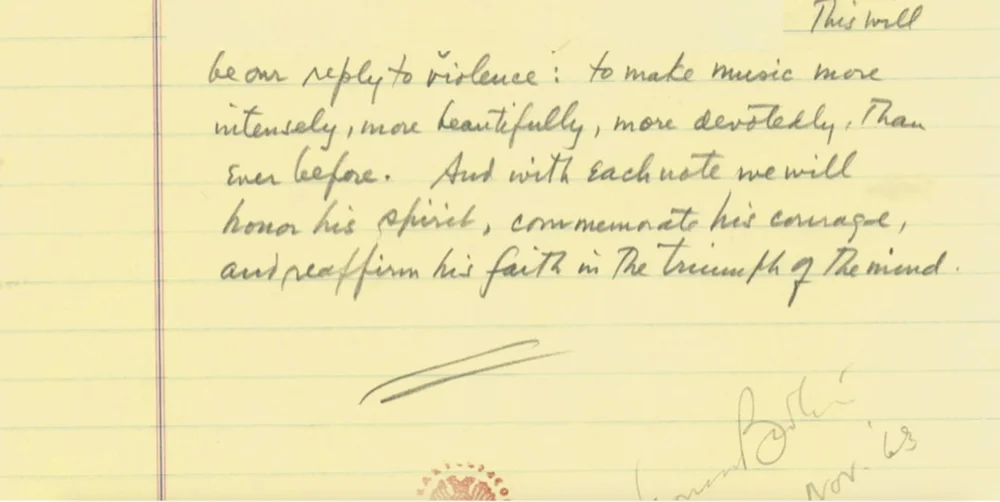 This will
be our reply to violence: to make music more
intensely, more beautifully, more devotedly, Than
ever before. And with each note we will
honor his spirit, commemorate his courage,
and reaffirm his faith in The triumph of The mind.
Nov. '63